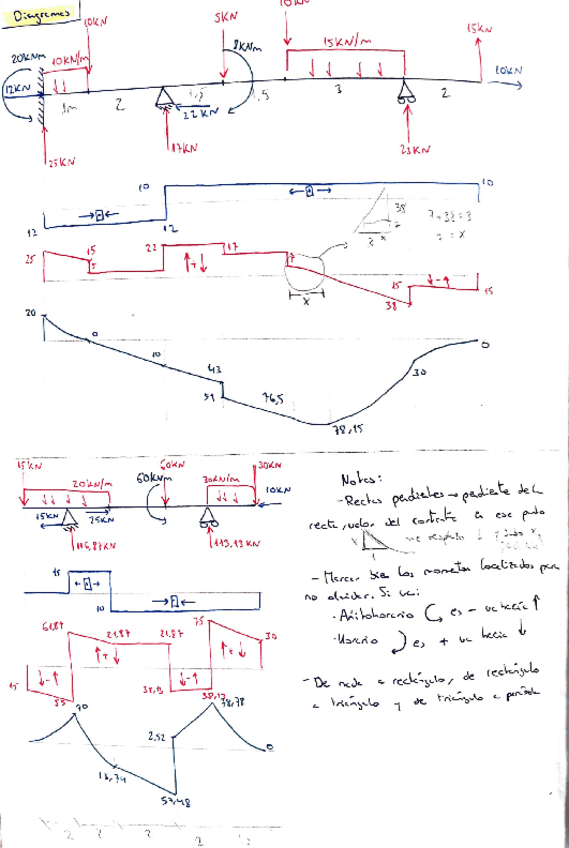 Diagramas
10KN
5KN
10KN
20KNm
10KN/m
8KNm
15KN/m
15KN
12KN
10KN
1m
2
1,5
22KN
1,5
3
2
25KN
17KN
23KN
10
10
12
12
38
7
3
x
25
15
5
22
17
7
15
38
15
x
20
0
10
43
51
76,5
78,15
30
0
15KN
20KN/m
60KN
60KNm
30KN/m
30KN
15KN
25KN
10KN
116,87KN
113,13KN
15
10
61,87
21,87
21,87
75
30
15
55
38,13
70
2,52
78,78
0
13,74
57,48
2
2
2
2
Notas:
- Rectas pendientes → pendiente de la
recta, valor del cortante en ese punto
- Marcar bien los momentos localizados para
no olvidar. Si va:
· Antihorario es - va hacia ↑
· Horario es + va hacia ↓
- De nada a rectángulo, de rectángulo
a triángulo y de triángulo a parábola